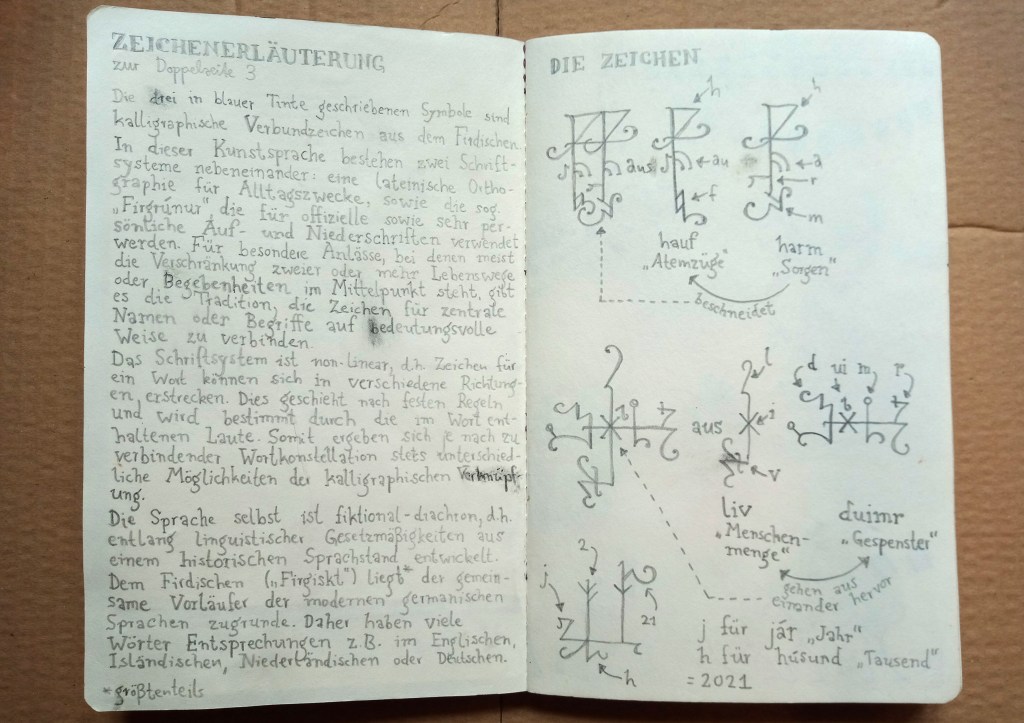 ZEICHENERLÄUTERUNG
zur Doppelseite 3
Die drei in blauer Tinte geschriebenen Symbole sind
kalligraphische Verbundzeichen aus dem Firdischen.
In dieser Kunstsprache bestehen zwei Schrift-
systeme nebeneinander: eine lateinische Ortho-
graphie für Alltagszwecke, sowie die sog.
„Firgrúnur", die für offizielle sowie sehr per-
sönliche Auf- und Niederschriften verwendet
werden. Für besondere Anlässe, bei denen meist
die Verschränkung zweier oder mehr Lebenswege
oder Begebenheiten im Mittelpunkt steht, gibt
es die Tradition, die Zeichen für zentrale
Namen oder Begriffe auf bedeutungsvolle
Weise zu verbinden.
Das Schriftsystem ist non-linear, d.h. Zeichen für
ein Wort können sich in verschiedene Richtung-
en erstrecken. Dies geschieht nach festen Regeln
und wird bestimmt durch die im Wort ent-
haltenen Laute. Somit ergeben sich je nach zu
verbindender Wortkonstellation stets unterschied-
liche Möglichkeiten der kalligraphischen Verknüpf-
ung.
Die Sprache selbst ist fiktional-diachron, d.h.
entlang linguistischer Gesetzmäßigkeiten aus
einem historischen Sprachstand entwickelt.
Dem Firdischen („Firgiskt") liegt* der gemein-
same Vorläufer der modernen germanischen
Sprachen zugrunde. Daher haben viele
Wörter Entsprechungen z.B. im Englischen,
Isländischen, Niederländischen oder Deutschen.
*größtenteils
DIE ZEICHEN
h h
aus au a
f r
m
hauf harm
„Atemzüge" „Sorgen"
beschneidet
l d ui m r
aus i
v
liv duimr
„Menschen- „Gespenster"
menge"
gehen aus
einander hervor
j 2 21
h
j für jár „Jahr"
h für húsund „Tausend"
= 2021